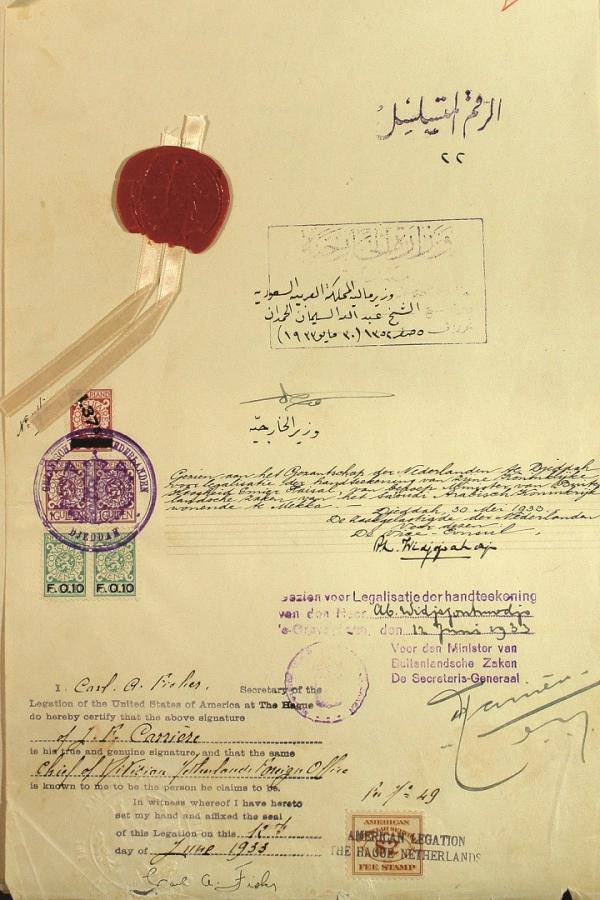 الرقم المتسلسل
٢٢
وزارة الخارجية
وزير مالية المملكة العربية السعودية
الشيخ عبد الله السليمان الحمدان
٥ صفر ١٣٥٢ (٣٠ مايو ١٩٣٣)
وزير الخارجيّة
37
GULDEN GULDEN
DJEDDAH
F.0.10 F.0.10
Gezien aan het Gezantschap der Nederlanden te Djeddah
voor legalisatie der handteekening van Zijne Koninklijke
Hoogheid Emir Faisal, van beroep Minister van Buiten-
landsche Zaken van het Saoudi Arabisch Koninkrijk
wonende te Mekka.
Djeddah 30 Mei 1933
De Zaakgelastigde der Nederlanden
Voor dezen:
De Vice Consul,
Gezien voor Legalisatie der handteekening
van den Heer
's-Gravenhage, den 12 Juni 1933
Voor den Minister van
Buitenlandsche Zaken
De Secretaris-Generaal
I, Carl A. Fisher, Secretary of the
Legation of the United States of America at The Hague
do hereby certify that the above signature
of J. F. Carrière
is his true and genuine signature, and that the same
Chief of Division Netherlands Foreign Office
is known to me to be the person he claims to be.
In witness whereof I have hereto
set my hand and affixed the seal
of this Legation on this 12th
day of June 1933
Carl A. Fisher
49
AMERICAN
FEE STAMP
AMERICAN LEGATION
THE HAGUE NETHERLANDS